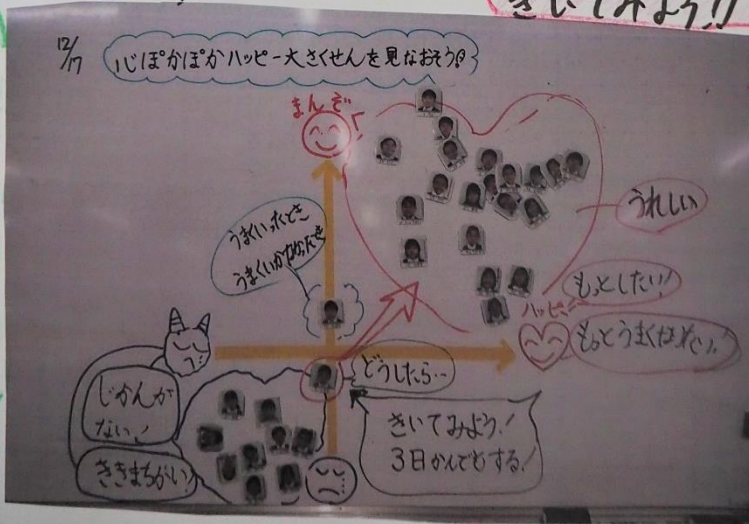 きいてみよう!!
12/17
心ぽかぽかハッピー大さくせんを見なおそう!
まんぞく
うまくいったとき
うまくいかなかったとき
うれしい
もっとしたい!
ハッピー
もっとうまくなりたい!
どうしたら…
じかんが
ない!
ききまちがい!
きいてみよう!
3日かんでもする!